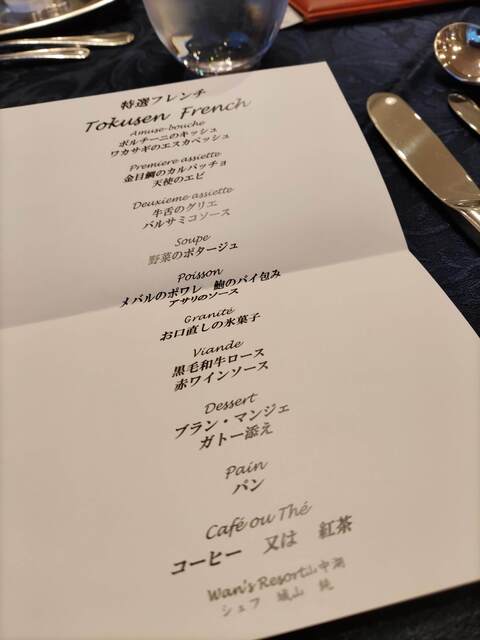 特選フレンチ
Tokusen French
Amuse-bouche
ポルチーニのキッシュ
ワカサギのエスカベッシュ
Premiere assiette
金目鯛のカルパッチョ
天使のエビ
Deuxieme assiette
牛舌のグリエ
バルサミコソース
Soupe
野菜のポタージュ
Poisson
メバルのポワレ 鮑のパイ包み
アサリのソース
Granité
お口直しの氷菓子
Viande
黒毛和牛ロース
赤ワインソース
Dessert
ブラン・マンジェ
ガトー添え
Pain
パン
Café ou Thé
コーヒー 又は 紅茶
Wan's Resort山中湖
シェフ 城山 純